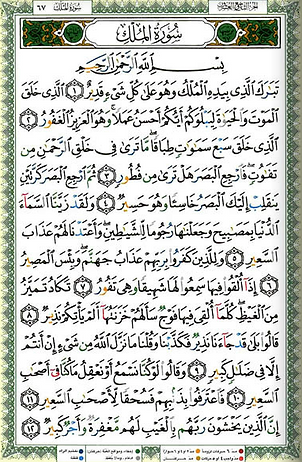 سُورَةُ المُلْكِ ٦٧
سُورَةُ المُلْكِ
بِسْمِ اللَّهِ الرَّحْمَٰنِ الرَّحِيمِ
تَبَٰرَكَ الَّذِى بِيَدِهِ الْمُلْكُ وَهُوَ عَلَىٰ كُلِّ شَىْءٍ قَدِيرٌ ١ الَّذِى خَلَقَ
الْمَوْتَ وَالْحَيَوٰةَ لِيَبْلُوَكُمْ أَيُّكُمْ أَحْسَنُ عَمَلًا وَهُوَ الْعَزِيزُ الْغَفُورُ ٢
الَّذِى خَلَقَ سَبْعَ سَمَٰوَٰتٍ طِبَاقًا مَّا تَرَىٰ فِى خَلْقِ الرَّحْمَٰنِ مِن
تَفَٰوُتٍ فَارْجِعِ الْبَصَرَ هَلْ تَرَىٰ مِن فُطُورٍ ٣ ثُمَّ ارْجِعِ الْبَصَرَ كَرَّتَيْنِ
يَنقَلِبْ إِلَيْكَ الْبَصَرُ خَاسِئًا وَهُوَ حَسِيرٌ ٤ وَلَقَدْ زَيَّنَّا السَّمَآءَ
الدُّنْيَا بِمَصَٰبِيحَ وَجَعَلْنَٰهَا رُجُومًا لِّلشَّيَٰطِينِ وَأَعْتَدْنَا لَهُمْ عَذَابَ
السَّعِيرِ ٥ وَلِلَّذِينَ كَفَرُوا۟ بِرَبِّهِمْ عَذَابُ جَهَنَّمَ وَبِئْسَ الْمَصِيرُ
٦ إِذَآ أُلْقُوا۟ فِيهَا سَمِعُوا۟ لَهَا شَهِيقًا وَهِىَ تَفُورُ ٧ تَكَادُ تَمَيَّزُ
مِنَ الْغَيْظِ كُلَّمَآ أُلْقِىَ فِيهَا فَوْجٌ سَأَلَهُمْ خَزَنَتُهَآ أَلَمْ يَأْتِكُمْ نَذِيرٌ ٨
قَالُوا۟ بَلَىٰ قَدْ جَآءَنَا نَذِيرٌ فَكَذَّبْنَا وَقُلْنَا مَا نَزَّلَ اللَّهُ مِن شَىْءٍ إِنْ أَنتُمْ
إِلَّا فِى ضَلَٰلٍ كَبِيرٍ ٩ وَقَالُوا۟ لَوْ كُنَّا نَسْمَعُ أَوْ نَعْقِلُ مَا كُنَّا فِىٓ أَصْحَٰبِ
السَّعِيرِ ١٠ فَاعْتَرَفُوا۟ بِذَنۢبِهِمْ فَسُحْقًا لِّأَصْحَٰبِ السَّعِيرِ ١١
إِنَّ الَّذِينَ يَخْشَوْنَ رَبَّهُم بِالْغَيْبِ لَهُم مَّغْفِرَةٌ وَأَجْرٌ كَبِيرٌ ١٢